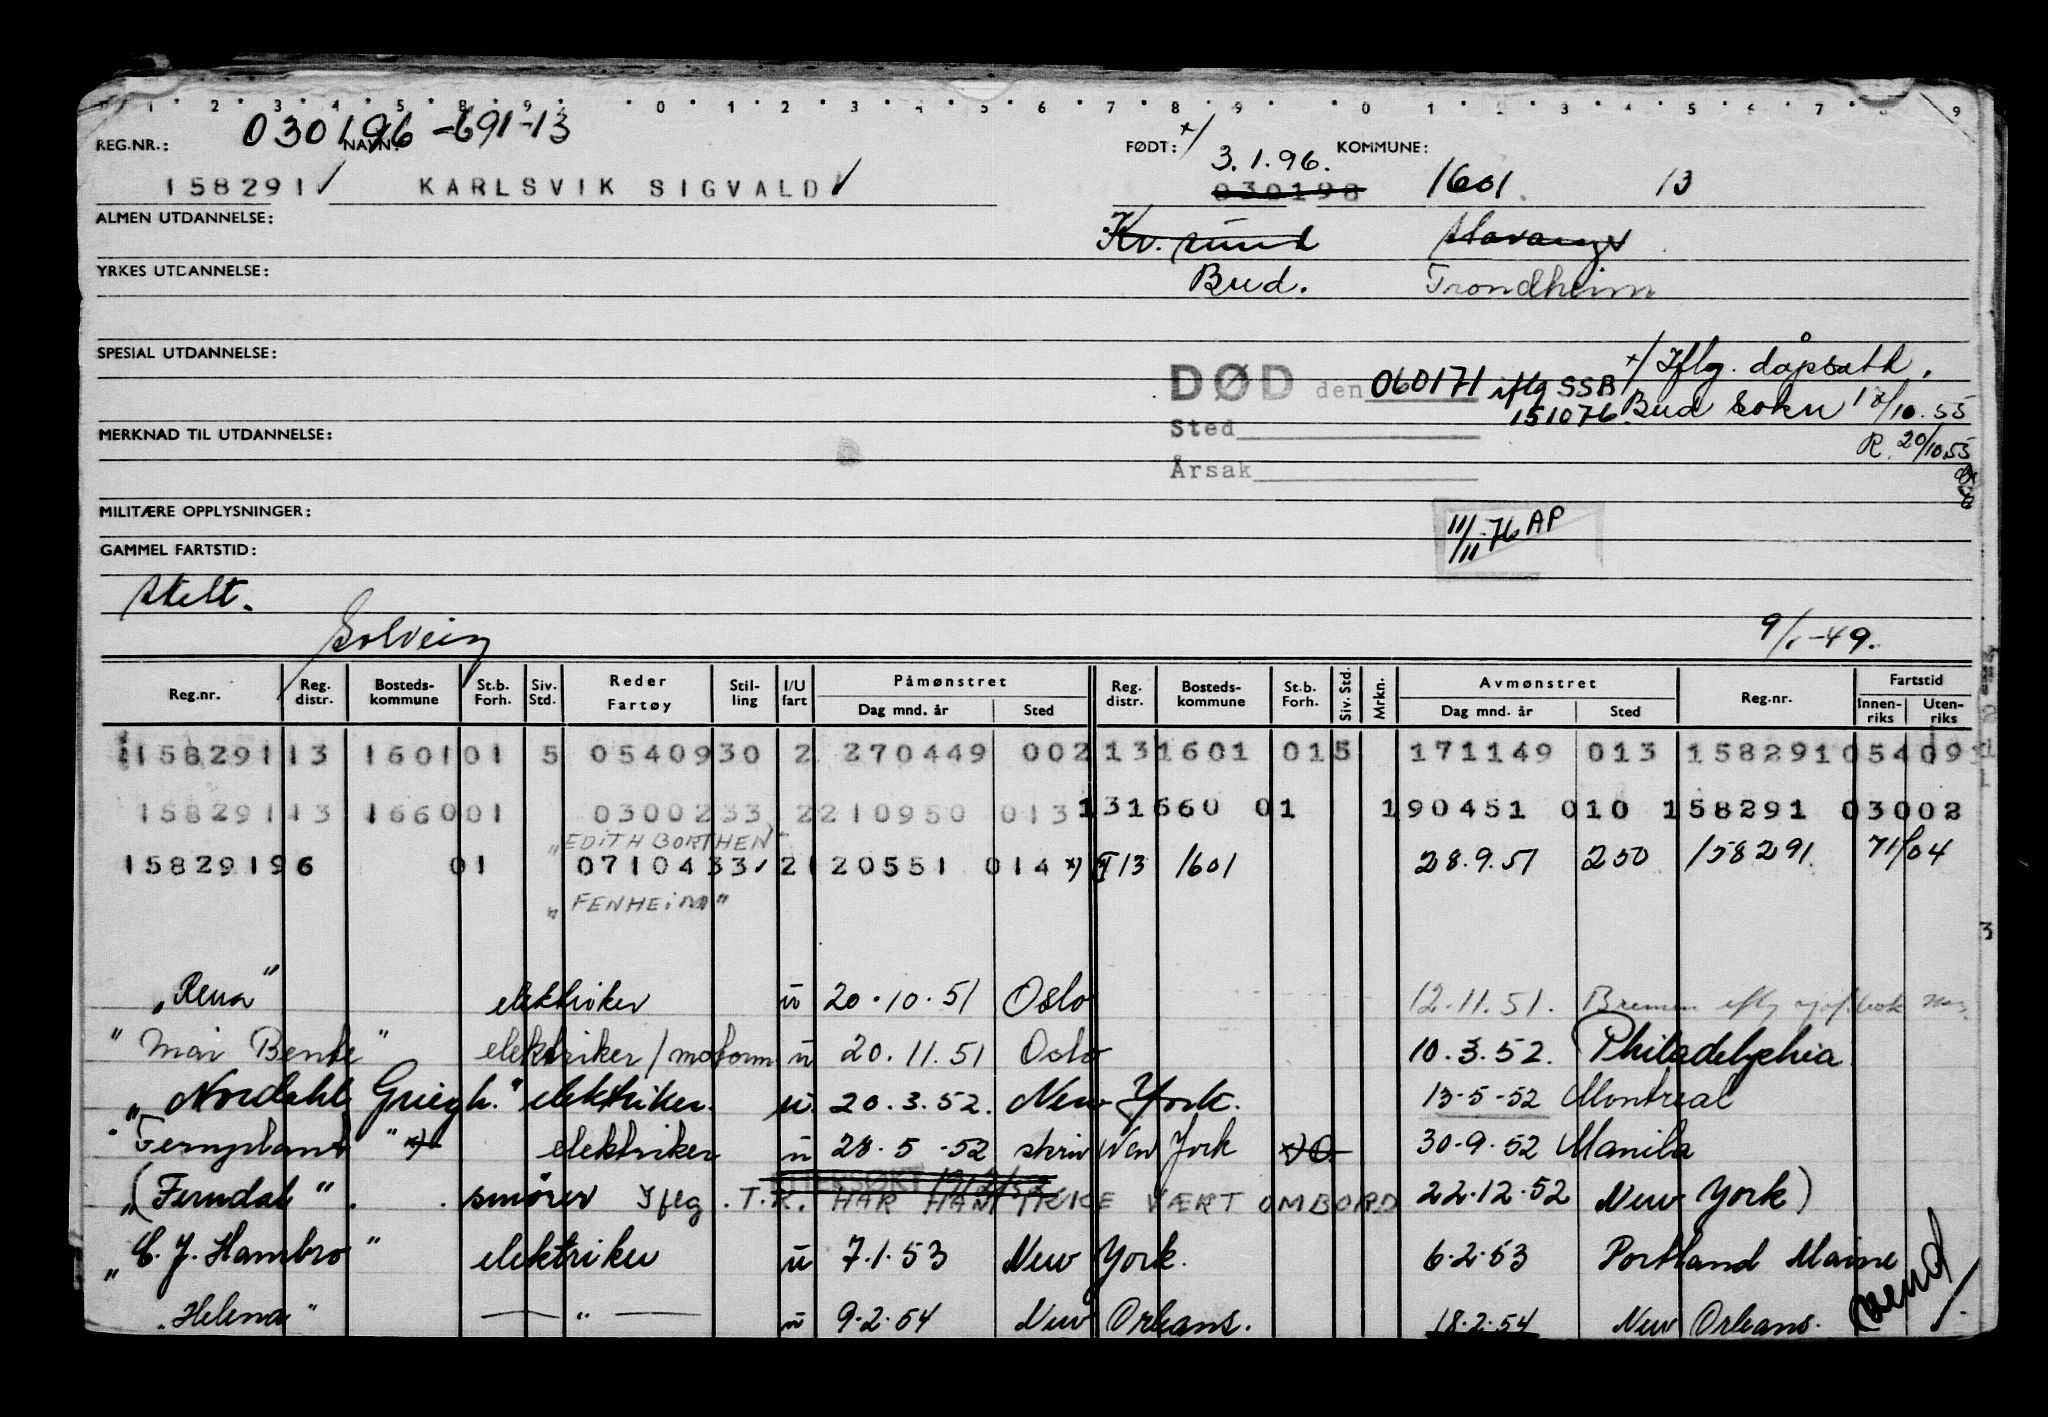 1 2 3 4 5 8 9 0 1 2 3 4 5 6 7 8 9 0 1 2 3 4 5 6 7 8 9
REG.NR.: 030196-691-13 NAVN: FØDT: x/ 3.1.96. KOMMUNE:
158291 ✓ KARLSVIK SIGVALD ✓ 030198 1601. 13
ALMEN UTDANNELSE: Kr.sund Stavanger
YRKES UTDANNELSE: Bud. Trondheim
SPESIAL UTDANNELSE: x/ Iflg. dåpsatt.
DØD den 060171 iflg SSB
151076. Bud sokn 18/10.55
Sted
MERKNAD TIL UTDANNELSE: R. 20/10.55
Årsak
MILITÆRE OPPLYSNINGER: 11/11.76 AP
GAMMEL FARTSTID:
Attelt.
Solveig 9/1-49.
Reg.nr. Reg. distr. Bosteds- kommune St.b. Forh. Siv. Std. Reder Fartøy Stil- ling I/U fart Påmønstret Dag mnd. år Sted Reg. distr. Bosteds- kommune St.b. Forh. Siv. Std. Mrkn. Avmønstret Dag mnd. år Sted Reg.nr. Fartstid Innen- riks Uten- riks
158291 13 1601 01 5 0540930 2 270449 002 13 1601 01 5 171149 013 158291 05409
158291 13 1660 01 0300233 2 210950 013 13 1660 01 190451 010 158291 03002
"EDITH BORTHEN"
158291 96 01 0710433 2 120551 014 x) x) 13 1601 28.9.51 250 158291 71/04
"FENHEIM"
"Rena" elektriker u 20.10.51 Oslo 12.11.51. Bremen
"Mai Bente" elektriker/motorm u 20.11.51 Oslo 10.3.52. Philadelphia
"Nordahl Griegh." elektriker. u. 20.3.52. New York. 13-5-52 Montreal
"Fernplant" x) elektriker u 28.5-52 skriv New York x) O 30.9.52 Manila
("Ferndal" smører Iflg. T.R. HAR HAN IKKE VÆRT OMBORD 22.12.52 New York)
"C. J. Hambro" elektriker u 7.1.53 New York. 6.2.53 Portland Maine
"Helena" — " — u 9.2.54 New Orleans. 18.2.54 New Orleans.
(vend/.